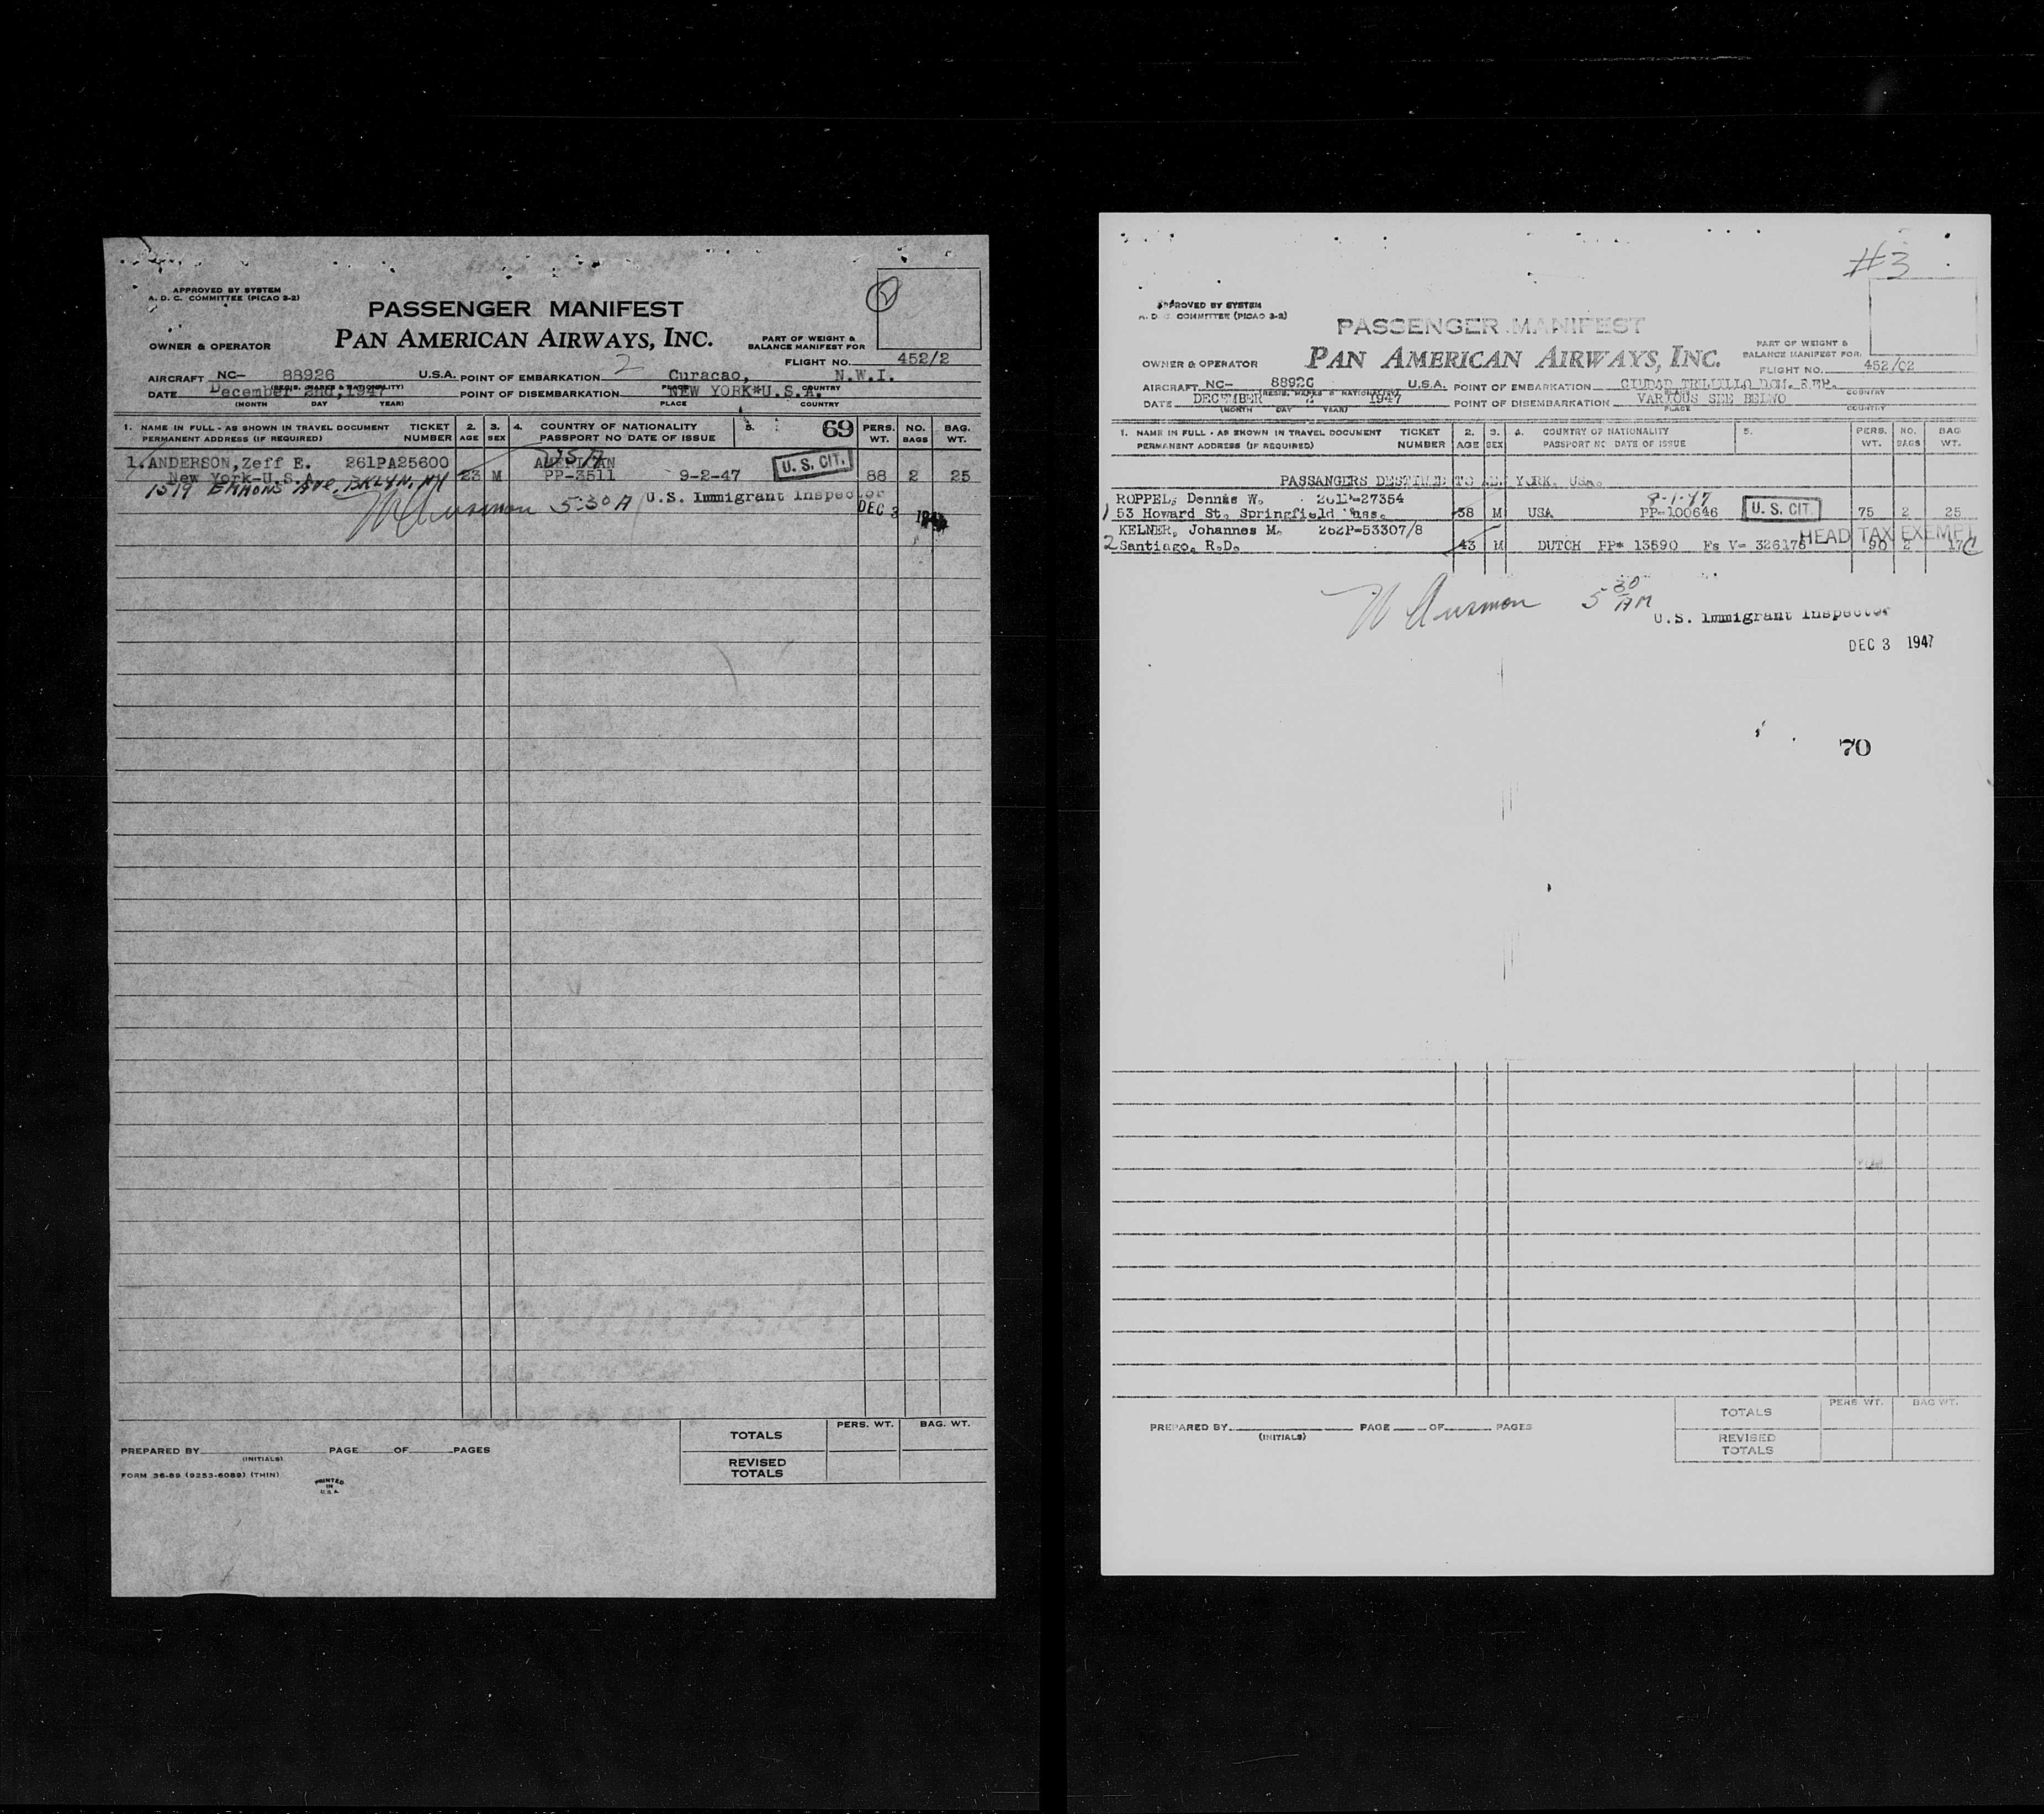 APPROVED BY SYSTEM
A. D. C. COMMITTEE (PICAO 3-2)
2
PASSENGER MANIFEST
PAN AMERICAN AIRWAYS, INC.
OWNER & OPERATOR
PART OF WEIGHT &
BALANCE MANIFEST FOR
FLIGHT NO. 452/2
2
AIRCRAFT NC- 88926 U.S.A. POINT OF EMBARKATION Curacao, N.W.I.
(REGIS. MARKS & NATIONALITY) PLACE COUNTRY
DATE December 2nd,1947 POINT OF DISEMBARKATION NEW YORK*U.S.A.
(MONTH DAY YEAR) PLACE COUNTRY
1. NAME IN FULL - AS SHOWN IN TRAVEL DOCUMENT TICKET 2. 3. 4. COUNTRY OF NATIONALITY 5. 69 PERS. NO. BAG.
PERMANENT ADDRESS (IF REQUIRED) NUMBER AGE SEX PASSPORT NO DATE OF ISSUE WT. BAGS WT.
USA
1. ANDERSON, Zeff E. 261PA25600 AMERICAN U. S. CIT.
New York-U.S.A. 23 M PP-3511 9-2-47 88 2 25
1519 EMMONS AVE, BKLYN, NY
5:30 A U.S. Immigrant Inspector
DEC 3 1947
TOTALS PERS. WT. BAG. WT.
PREPARED BY PAGE OF PAGES
(INITIALS)
REVISED
TOTALS
FORM 36-89 (9253-6089) (THIN)
PRINTED
IN
U.S.A.
#3
APPROVED BY SYSTEM
A. D. C. COMMITTEE (PICAO 3-2)
PASSENGER MANIFEST
PAN AMERICAN AIRWAYS, INC.
OWNER & OPERATOR
PART OF WEIGHT &
BALANCE MANIFEST FOR
FLIGHT NO. 452/02
AIRCRAFT NC- 88926 U.S.A. POINT OF EMBARKATION CIUDAD TRUJILLO DOM. REP.
(REGIS. MARKS & NATIONALITY) PLACE COUNTRY
DATE DECEMBER 2 1947 POINT OF DISEMBARKATION VARIOUS SEE BELWO
(MONTH DAY YEAR) PLACE COUNTRY
1. NAME IN FULL - AS SHOWN IN TRAVEL DOCUMENT TICKET 2. 3. 4. COUNTRY OF NATIONALITY 5. PERS. NO. BAG
PERMANENT ADDRESS (IF REQUIRED) NUMBER AGE SEX PASSPORT NO DATE OF ISSUE WT. BAGS WT.
PASSANGERS DESTINED TO YORK. USA.
ROPPEL, Dennis W. 261P-27354 8-1-47
1 53 Howard St. Springfield Mass. 38 M USA PP-100646 U. S. CIT. 75 2 25
KELNER, Johannes M. 262P-53307/8 HEAD TAX EXEMPT
2 Santiago. R.D. 43 M DUTCH PP* 13590 Fs V= 326176 90 2 17
5 30 AM
U.S. Immigrant Inspector
DEC 3 1947
70
PERS WT. BAG WT.
TOTALS
PREPARED BY PAGE OF PAGES
(INITIALS)
REVISED
TOTALS